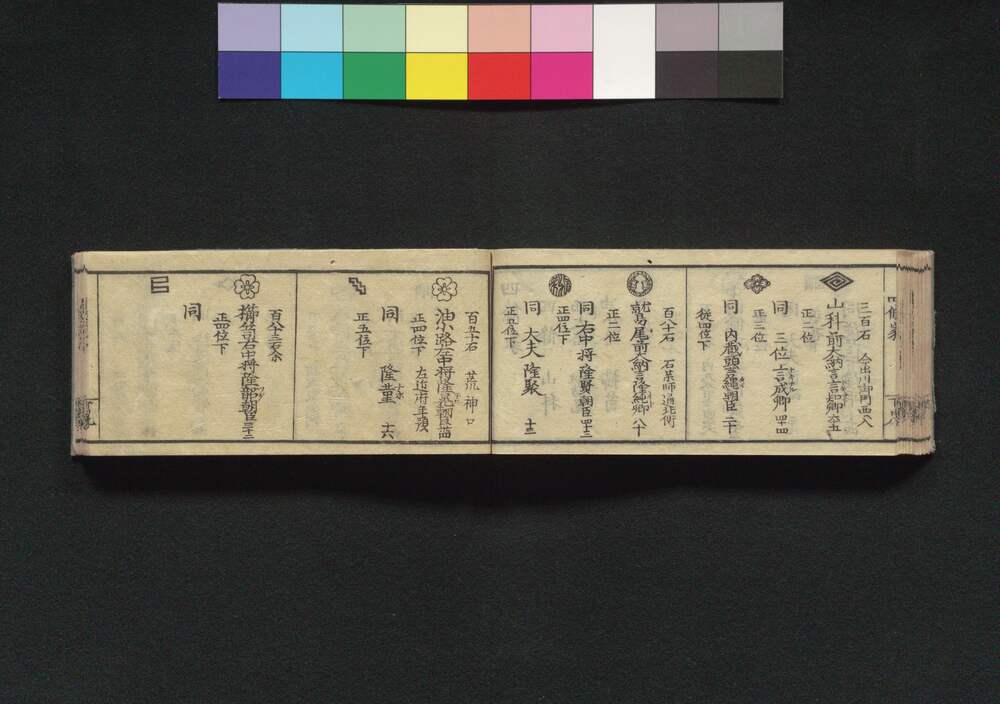 三百石 今出川御門西へ入
山科前大納言言知卿 六十五
正二位
同 三位言成卿 四十四
正三位
同 内蔵頭言縄朝臣 二十
従四位下
百八十石 石薬師通北側
鷲尾前大納言隆純卿 八十
正二位
同 右中将隆賢朝臣 四十三
正四位下
同 大夫隆聚 十三
正五位下
百五十石 荒神口
油小路左中将隆晃朝臣
正四位下 左近府年預
同 隆董 十六
正五位下
百八十三石余
櫛笥右中将隆韶朝臣 三十二
正四位下
同